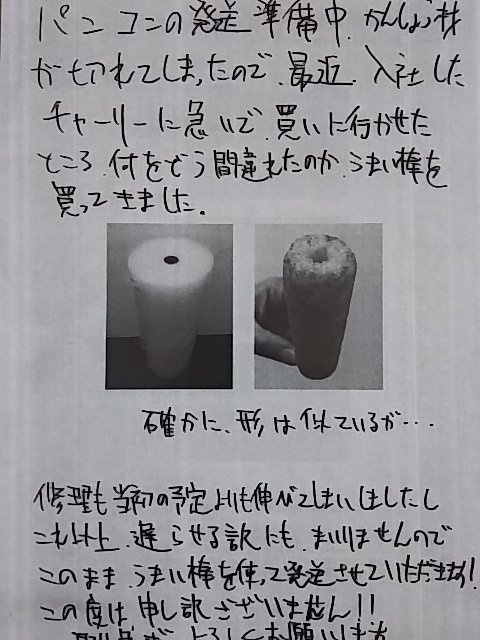 パソコンの発送準備中、かんしょう材
が切れてしまったので、最近、入社した
チャーリーに急いで、買いに行かせた
ところ、何をどう間違えたのか、うまい棒を
買ってきました。
確かに、形は似ているが…
修理も当初の予定よりも伸びてしまいましたし
これ以上、遅らせる訳にも、まいりませんので
このまま、うまい棒を使って発送させていただきます!
この度は申し訳ございません!!
よろしくお願いします